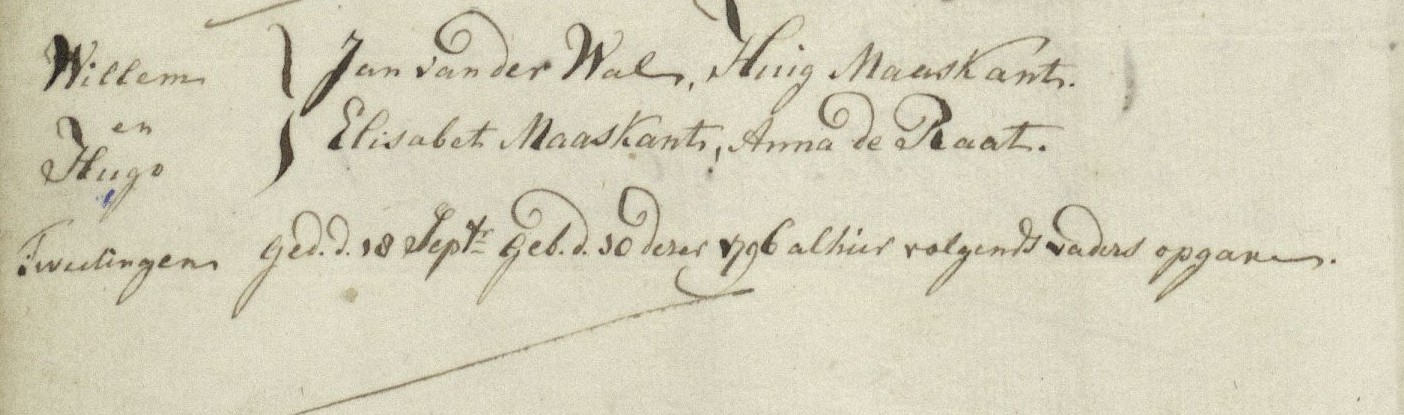 Willem } Jan van der Wal, Huig Maaskant.
en
Hugo } Elisabet Maaskant, Anna de Raat.
Tweelingen Ged. d. 18 Septr. Geb. d. 10 dezer 1796 alhier volgends vaders opgave.